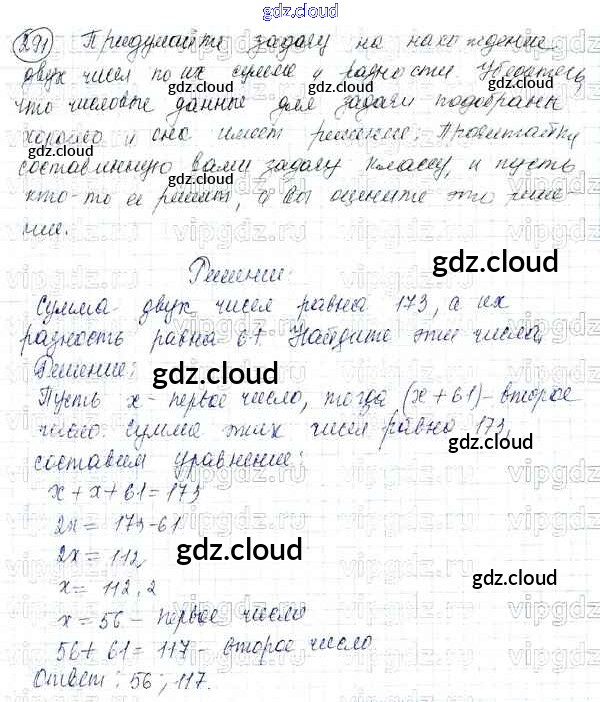 gdz.cloud
291 Придумайте задачу на нахождение
двух чисел по их сумме и разности. Убедитесь,
что числовые данные для задачи подобраны
хорошо и она имеет решение. Прочитайте
составленную вами задачу классу, и пусть
кто-то ее решит, а вы оцените это реше-
ние.
Решение:
Сумма двух чисел равна 173, а их
разность равна 61. Найдите эти числа.
Решение:
Пусть x - первое число, тогда (x + 61) - второе
число. Сумма этих чисел равна 173,
составим уравнение:
x + x + 61 = 173
2x = 173-61
2x = 112,
x = 112,2
x = 56 - первое число
56 + 61 = 117 - второе число
Ответ: 56; 117.